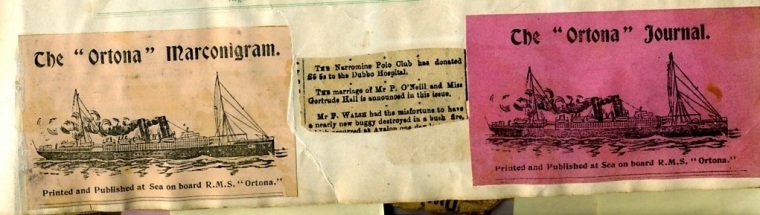 The "Ortona" Marconigram.
Printed and Published at Sea on board R.M.S. "Ortona."
THE Narromine Polo Club has donated
£5 5s to the Dubbo Hospital.
THE marriage of Mr P. O'Neill and Miss
Gertrude Hall is announced in this issue.
Mr P. WALSH had the misfortune to have
a nearly new buggy destroyed in a bush fire,
at Avalon one
The "Ortona" Journal.
Printed and Published at Sea on board R.M.S. "Ortona."